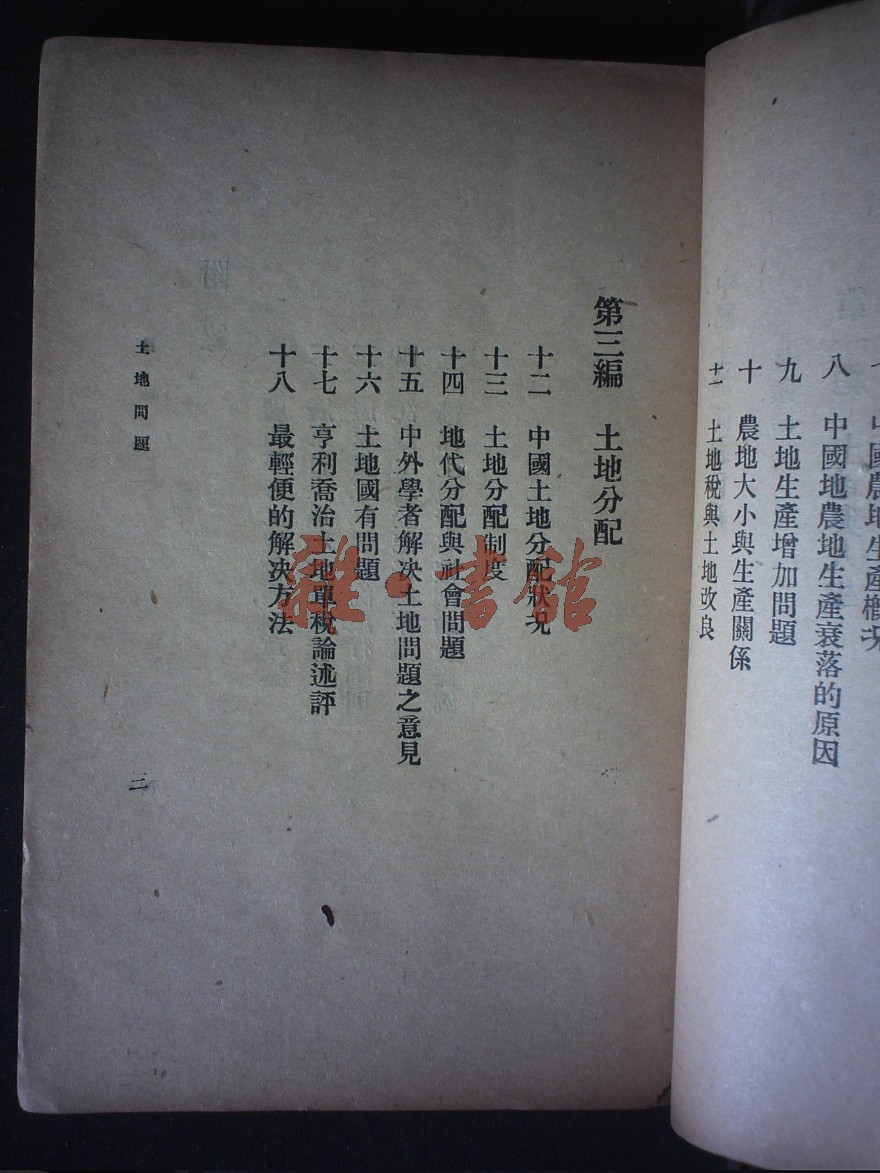 中國農地生產概況
八 中國地農地生產衰落的原因
九 土地生產增加問題
十 農地大小與生產關係
十一 土地稅與土地改良
第三編 土地分配
十二 中國土地分配狀況
十三 土地分配制度
十四 地代分配與社會問題
十五 中外學者解决土地問題之意見
十六 土地國有問題
十七 亨利喬治土地單稅論述評
十八 最輕便的解决方法
土地問題
二
雜·書館